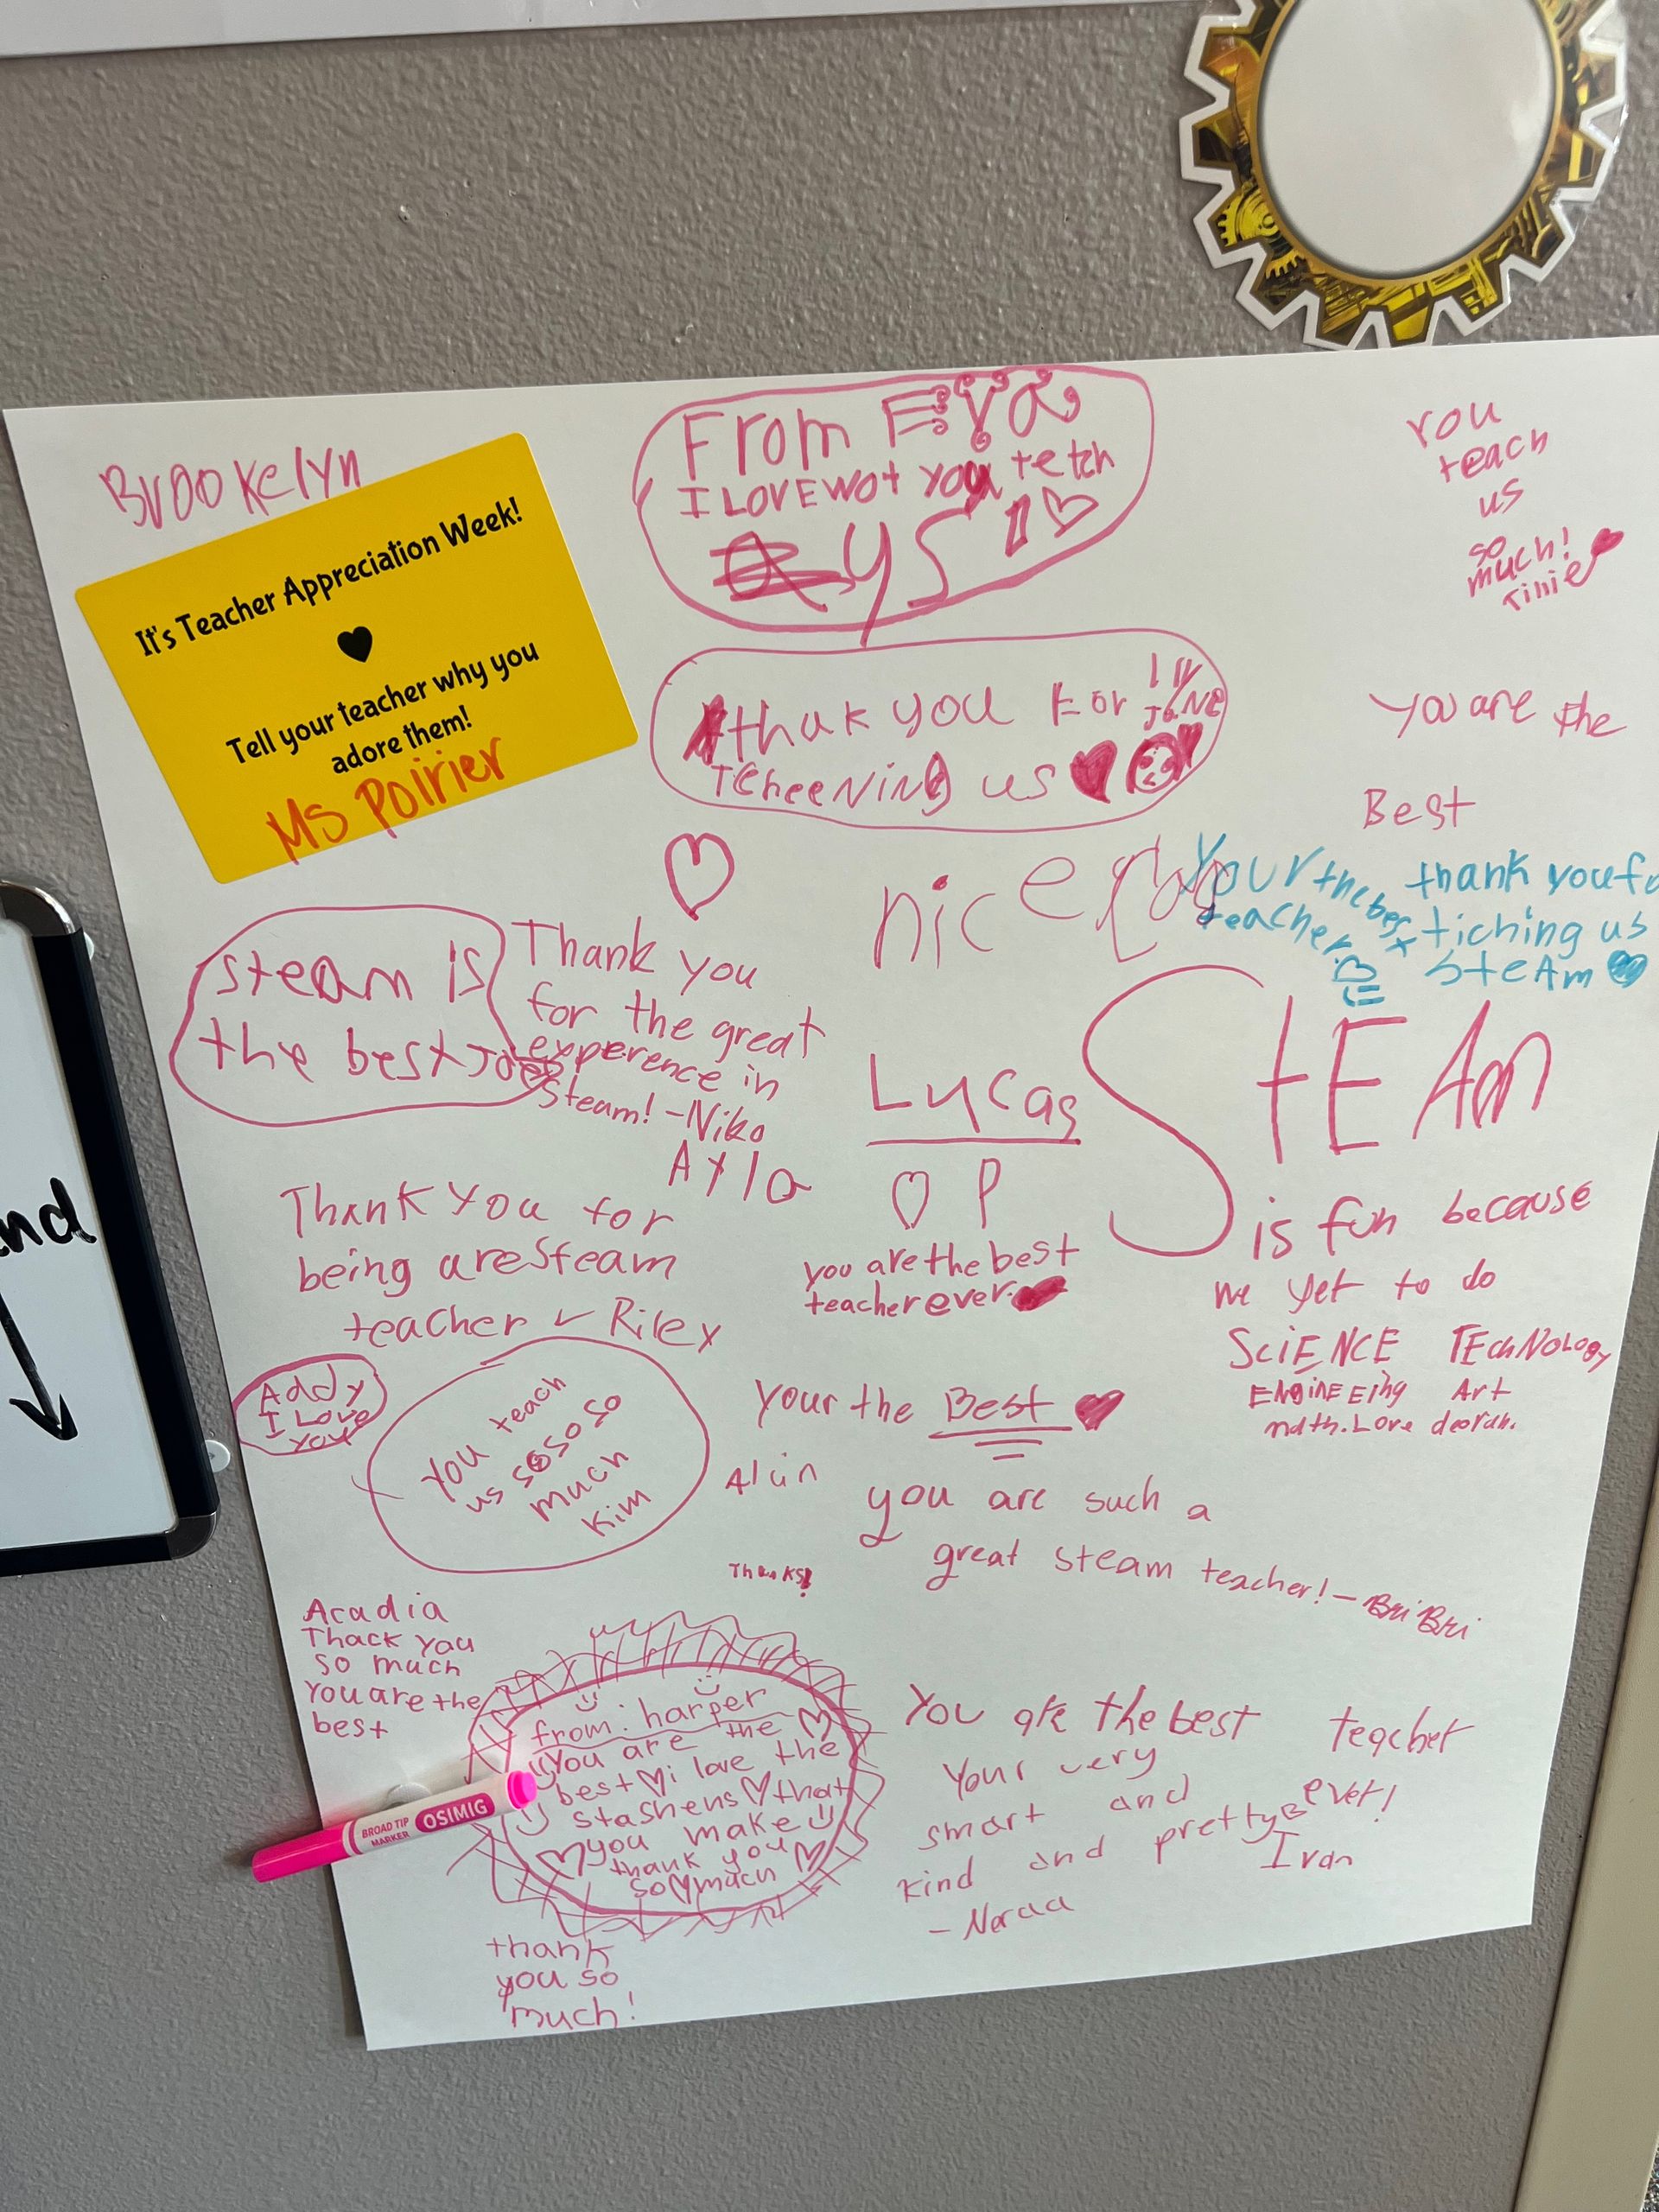 Brookelyn
It's Teacher Appreciation Week!
Tell your teacher why you
adore them!
MS Poirier
From Eva
I LOVE wot you tetch
ys
You
teach
us
so
much!
thuk you For
Jane
Tcheening us
You are the
Best
nice
Your the best
teacher
thank you fo
tiching us
SteAm
steam is
the best Joe
Thank you
for the great
experence in
Steam! -Niko
Ayla
Lucas
P
you are the best
teacher ever.
StEAm
is fun because
we yet to do
SciENCE TEchNology
Art
math. Love
Thank You for
being are Steam
teacher Riley
Addy
I Love
you
You teach
us so so so so
much
Kim
Your the Best
you are such a
great steam teacher! - Bri Bri
Thanks!
Acadia
Thack you
so much
You are the
best
from: harper
You are the
best i love the
stashens that
you make
thank you
so much
thank
you so
much!
You are the best teacher
ever!
Ivan
Your very
smart and
kind and pretty
OSIMIG
BROAD TIP
MARKER
nd